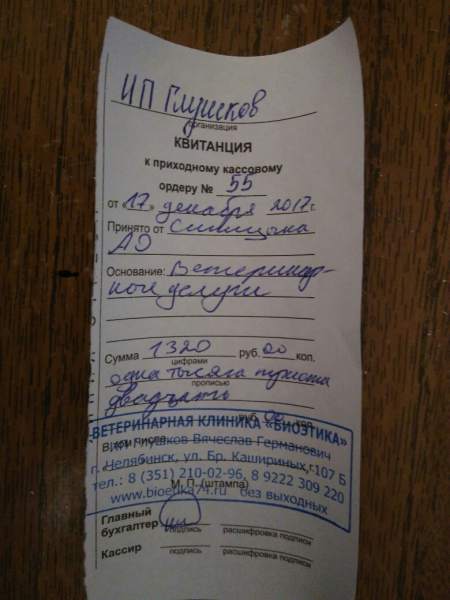 ИП Глушков
организация
КВИТАНЦИЯ
к приходному кассовому
ордеру № 55
от «17» декабря 2017г.
Принято от Синицына
АЭ
Основание: Ветеринар-
ные услуги
Сумма 1320 руб. 00 коп.
цифрами
одна тысяча триста
прописью
двадцать
руб. 00 коп.
ВЕТЕРИНАРНАЯ КЛИНИКА «БИОЭТИКА»
В том числе
ИП Глушков Вячеслав Германович
г. Челябинск, ул. Бр. Кашириных, 107 Б
тел.: 8 (351) 210-02-96, 8 9222 309 220
М. П. (штампа)
www.bioetika74.ru без выходных
Главный
бухгалтер
подпись расшифровка подписи
Кассир
подпись расшифровка подписи